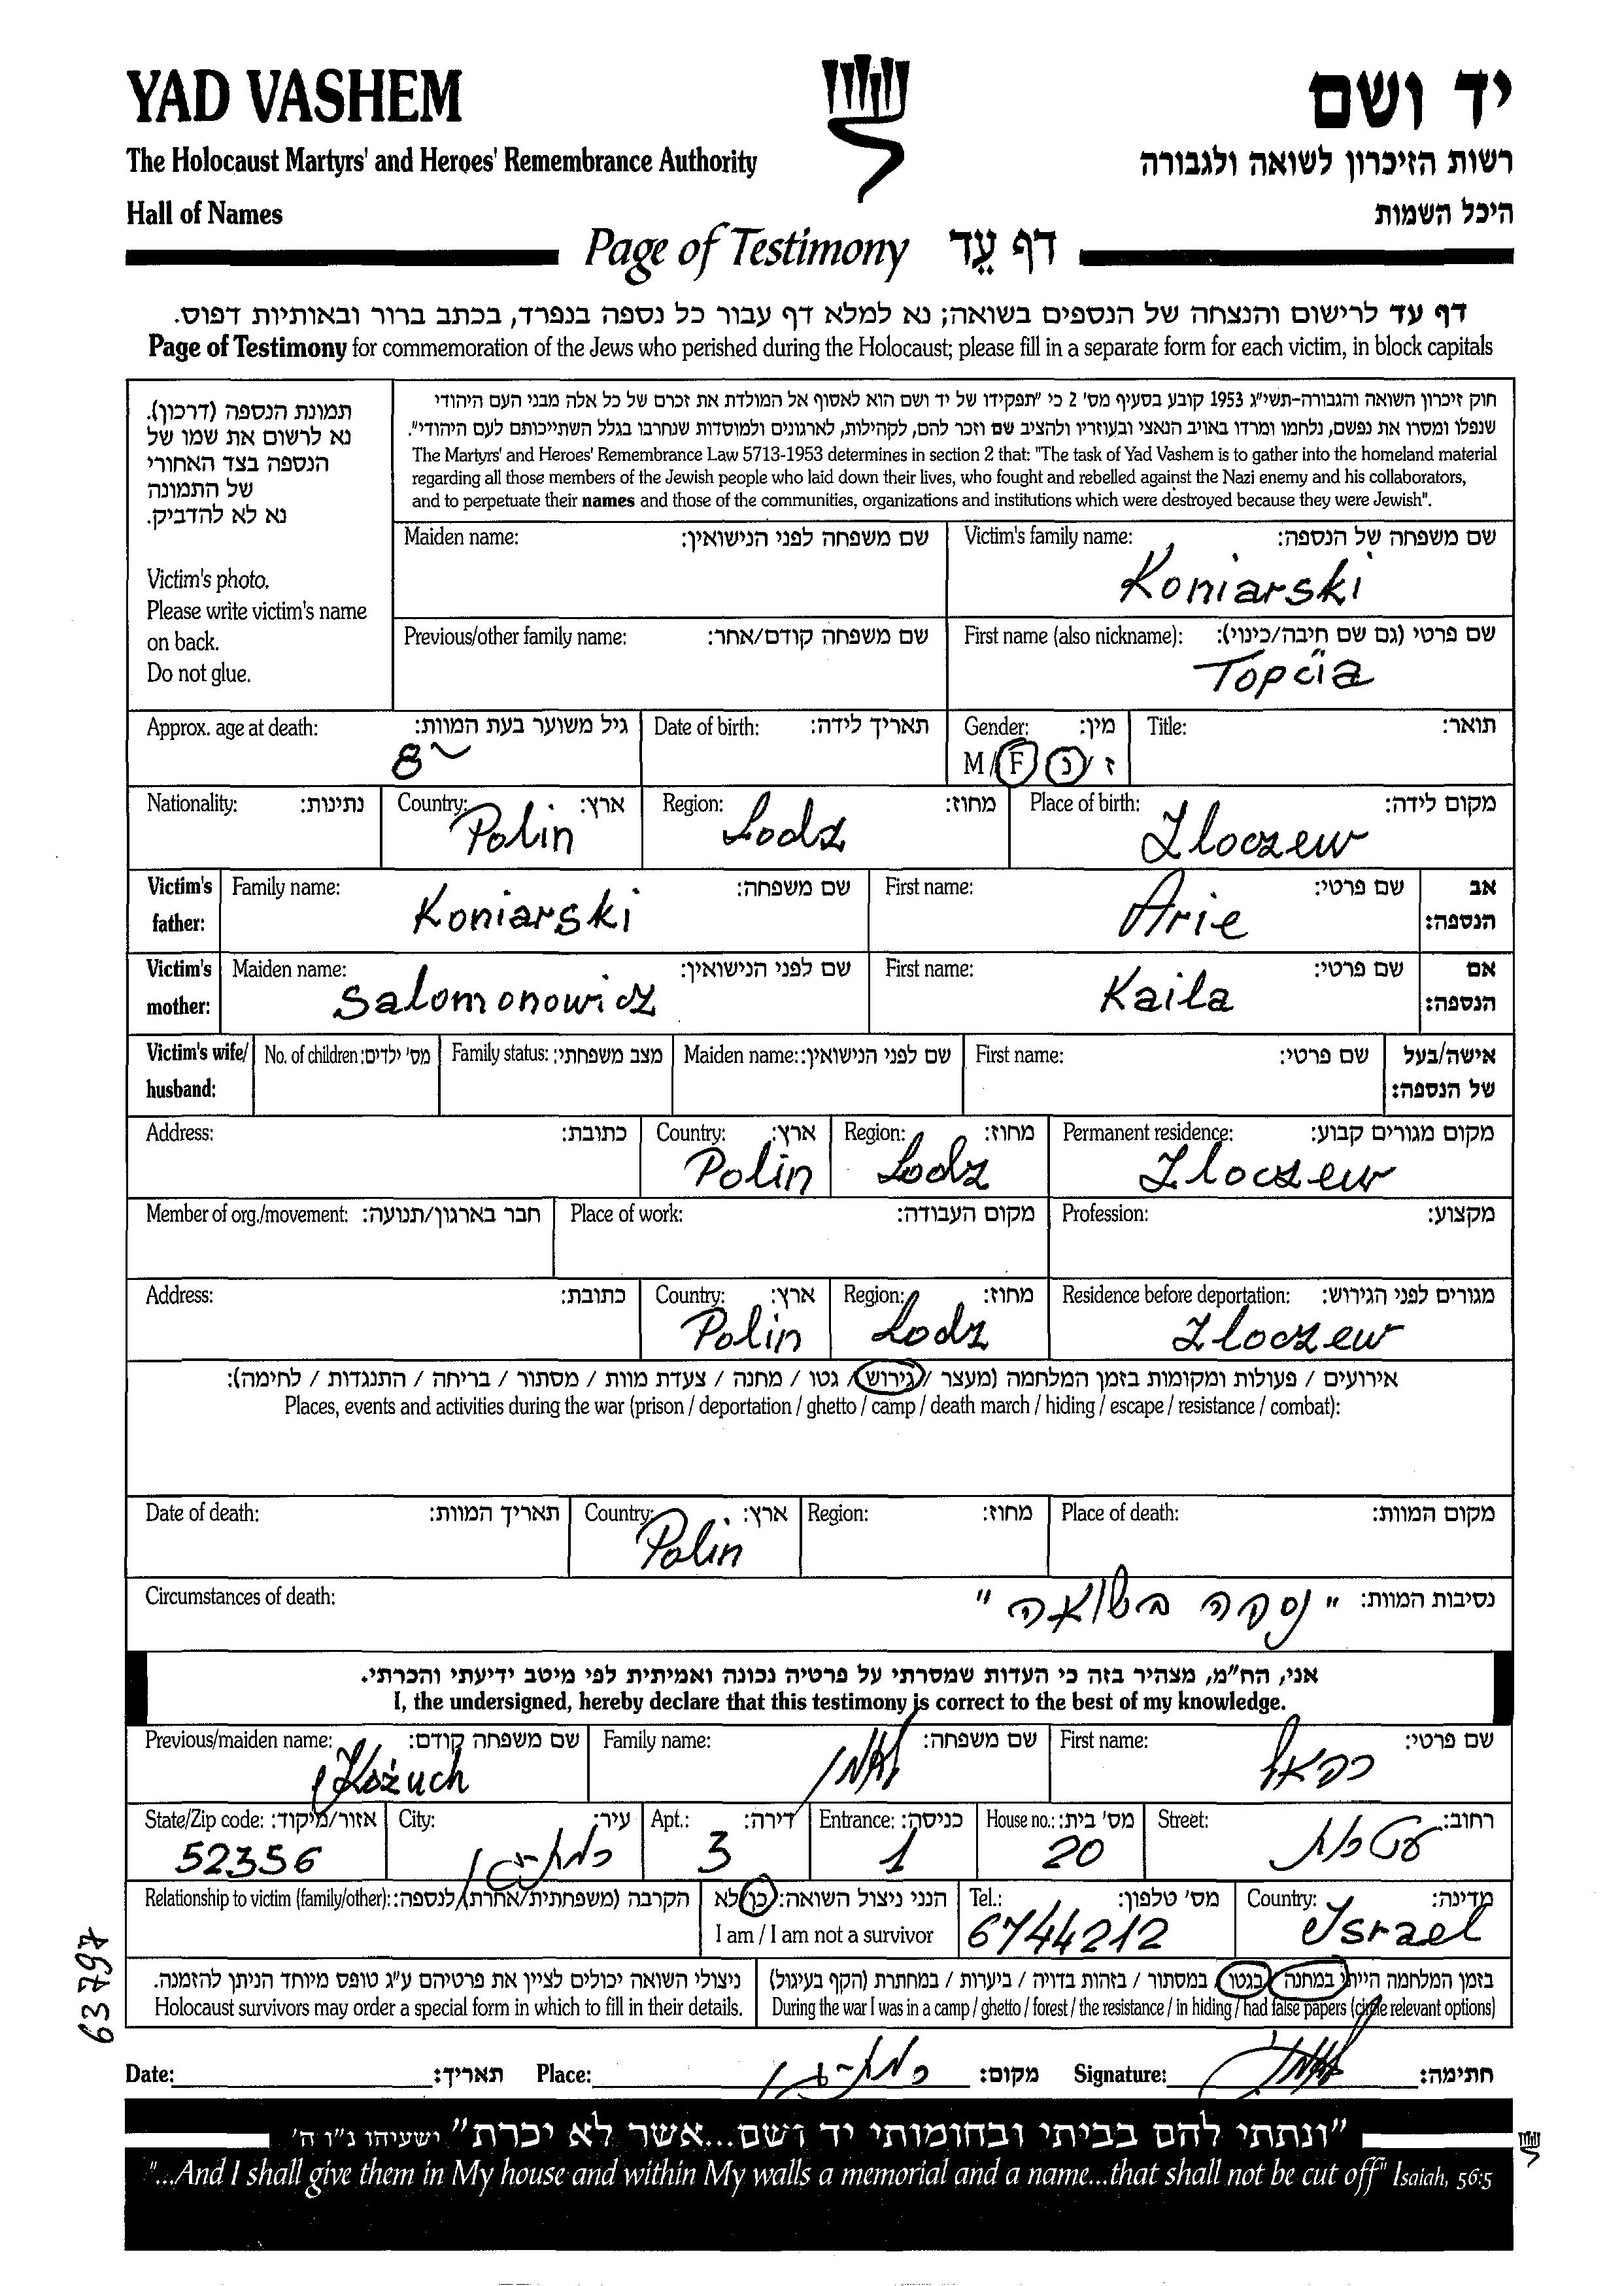 YAD VASHEM
יד ושם
The Holocaust Martyrs' and Heroes' Remembrance Authority
רשות הזיכרון לשואה ולגבורה
Hall of Names
היכל השמות
Page of Testimony דף עֵד
דף עד לרישום והנצחה של הנספים בשואה; נא למלא דף עבור כל נספה בנפרד, בכתב ברור ובאותיות דפוס.
Page of Testimony for commemoration of the Jews who perished during the Holocaust; please fill in a separate form for each victim, in block capitals
תמונת הנספה (דרכון).
נא לרשום את שמו של
הנספה בצד האחורי
של התמונה
נא לא להדביק.
Victim's photo.
Please write victim's name
on back.
Do not glue.
חוק זיכרון השואה והגבורה-תשי"ג 1953 קובע בסעיף מס' 2 כי "תפקידו של יד ושם הוא לאסוף אל המולדת את זכרם של כל אלה מבני העם היהודי
שנפלו ומסרו את נפשם, נלחמו ומרדו באויב הנאצי ובעוזריו ולהציב שם וזכר להם, לקהילות, לארגונים ולמוסדות שנחרבו בגלל השתייכותם לעם היהודי".
The Martyrs' and Heroes' Remembrance Law 5713-1953 determines in section 2 that: "The task of Yad Vashem is to gather into the homeland material
regarding all those members of the Jewish people who laid down their lives, who fought and rebelled against the Nazi enemy and his collaborators,
and to perpetuate their names and those of the communities, organizations and institutions which were destroyed because they were Jewish".
Maiden name: שם משפחה לפני הנישואין: Victim's family name: שם משפחה של הנספה:
Koniarski
Previous/other family name: שם משפחה קודם/אחר: First name (also nickname): שם פרטי (גם שם חיבה/כינוי):
Topcia
Approx. age at death: גיל משוער בעת המוות: Date of birth: תאריך לידה: Gender: מין: Title: תואר:
8 M / F נ / ז
Nationality: נתינות: Country: ארץ: Region: מחוז: Place of birth: מקום לידה:
Polin Lodz Zloczew
Victim's father: Family name: שם משפחה: First name: שם פרטי: אב הנספה:
Koniarski Arie
Victim's mother: Maiden name: שם לפני הנישואין: First name: שם פרטי: אם הנספה:
Salomonowicz Kaila
Victim's wife/ husband: No. of children: מס' ילדים: Family status: מצב משפחתי: Maiden name: שם לפני הנישואין: First name: שם פרטי: אישה/בעל של הנספה:
Address: כתובת: Country: ארץ: Region: מחוז: Permanent residence: מקום מגורים קבוע:
Polin Lodz Zloczew
Member of org./movement: חבר בארגון/תנועה: Place of work: מקום העבודה: Profession: מקצוע:
Address: כתובת: Country: ארץ: Region: מחוז: Residence before deportation: מגורים לפני הגירוש:
Polin Lodz Zloczew
אירועים / פעולות ומקומות בזמן המלחמה (מעצר / גירוש / גטו / מחנה / צעדת מוות / מסתור / בריחה / התנגדות / לחימה):
Places, events and activities during the war (prison / deportation / ghetto / camp / death march / hiding / escape / resistance / combat):
Date of death: תאריך המוות: Country: ארץ: Region: מחוז: Place of death: מקום המוות:
Polin
Circumstances of death: נסיבות המוות: "נספה בשואה"
אני, הח"מ, מצהיר בזה כי העדות שמסרתי על פרטיה נכונה ואמיתית לפי מיטב ידיעתי והכרתי.
I, the undersigned, hereby declare that this testimony is correct to the best of my knowledge.
Previous/maiden name: שם משפחה קודם: Family name: שם משפחה: First name: שם פרטי:
Kożuch רפאל
State/Zip code: אזור/מיקוד: City: עיר: Apt.: דירה: Entrance: כניסה: House no.: מס' בית: Street: רחוב:
52356 רמת-גן 3 1 20
Relationship to victim (family/other): הקרבה (משפחתית/אחרת) לנספה: הנני ניצול השואה: כן לא Tel.: מס' טלפון: Country: מדינה:
I am / I am not a survivor 6744212 Israel
ניצולי השואה יכולים לציין את פרטיהם ע"ג טופס מיוחד הניתן להזמנה. בזמן המלחמה הייתי במחנה / בגטו / במסתור / בזהות בדויה / ביערות / במחתרת (הקף בעיגול)
Holocaust survivors may order a special form in which to fill in their details. During the war I was in a camp / ghetto / forest / the resistance / in hiding / had false papers (circle relevant options)
63797
Date: תאריך: Place: רמת-גן מקום: Signature: חתימה:
"ונתתי להם בביתי ובחומותי יד ושם...אשר לא יכרת" ישעיהו נ"ו ה'
"...And I shall give them in My house and within My walls a memorial and a name...that shall not be cut off" Isaiah, 56:5